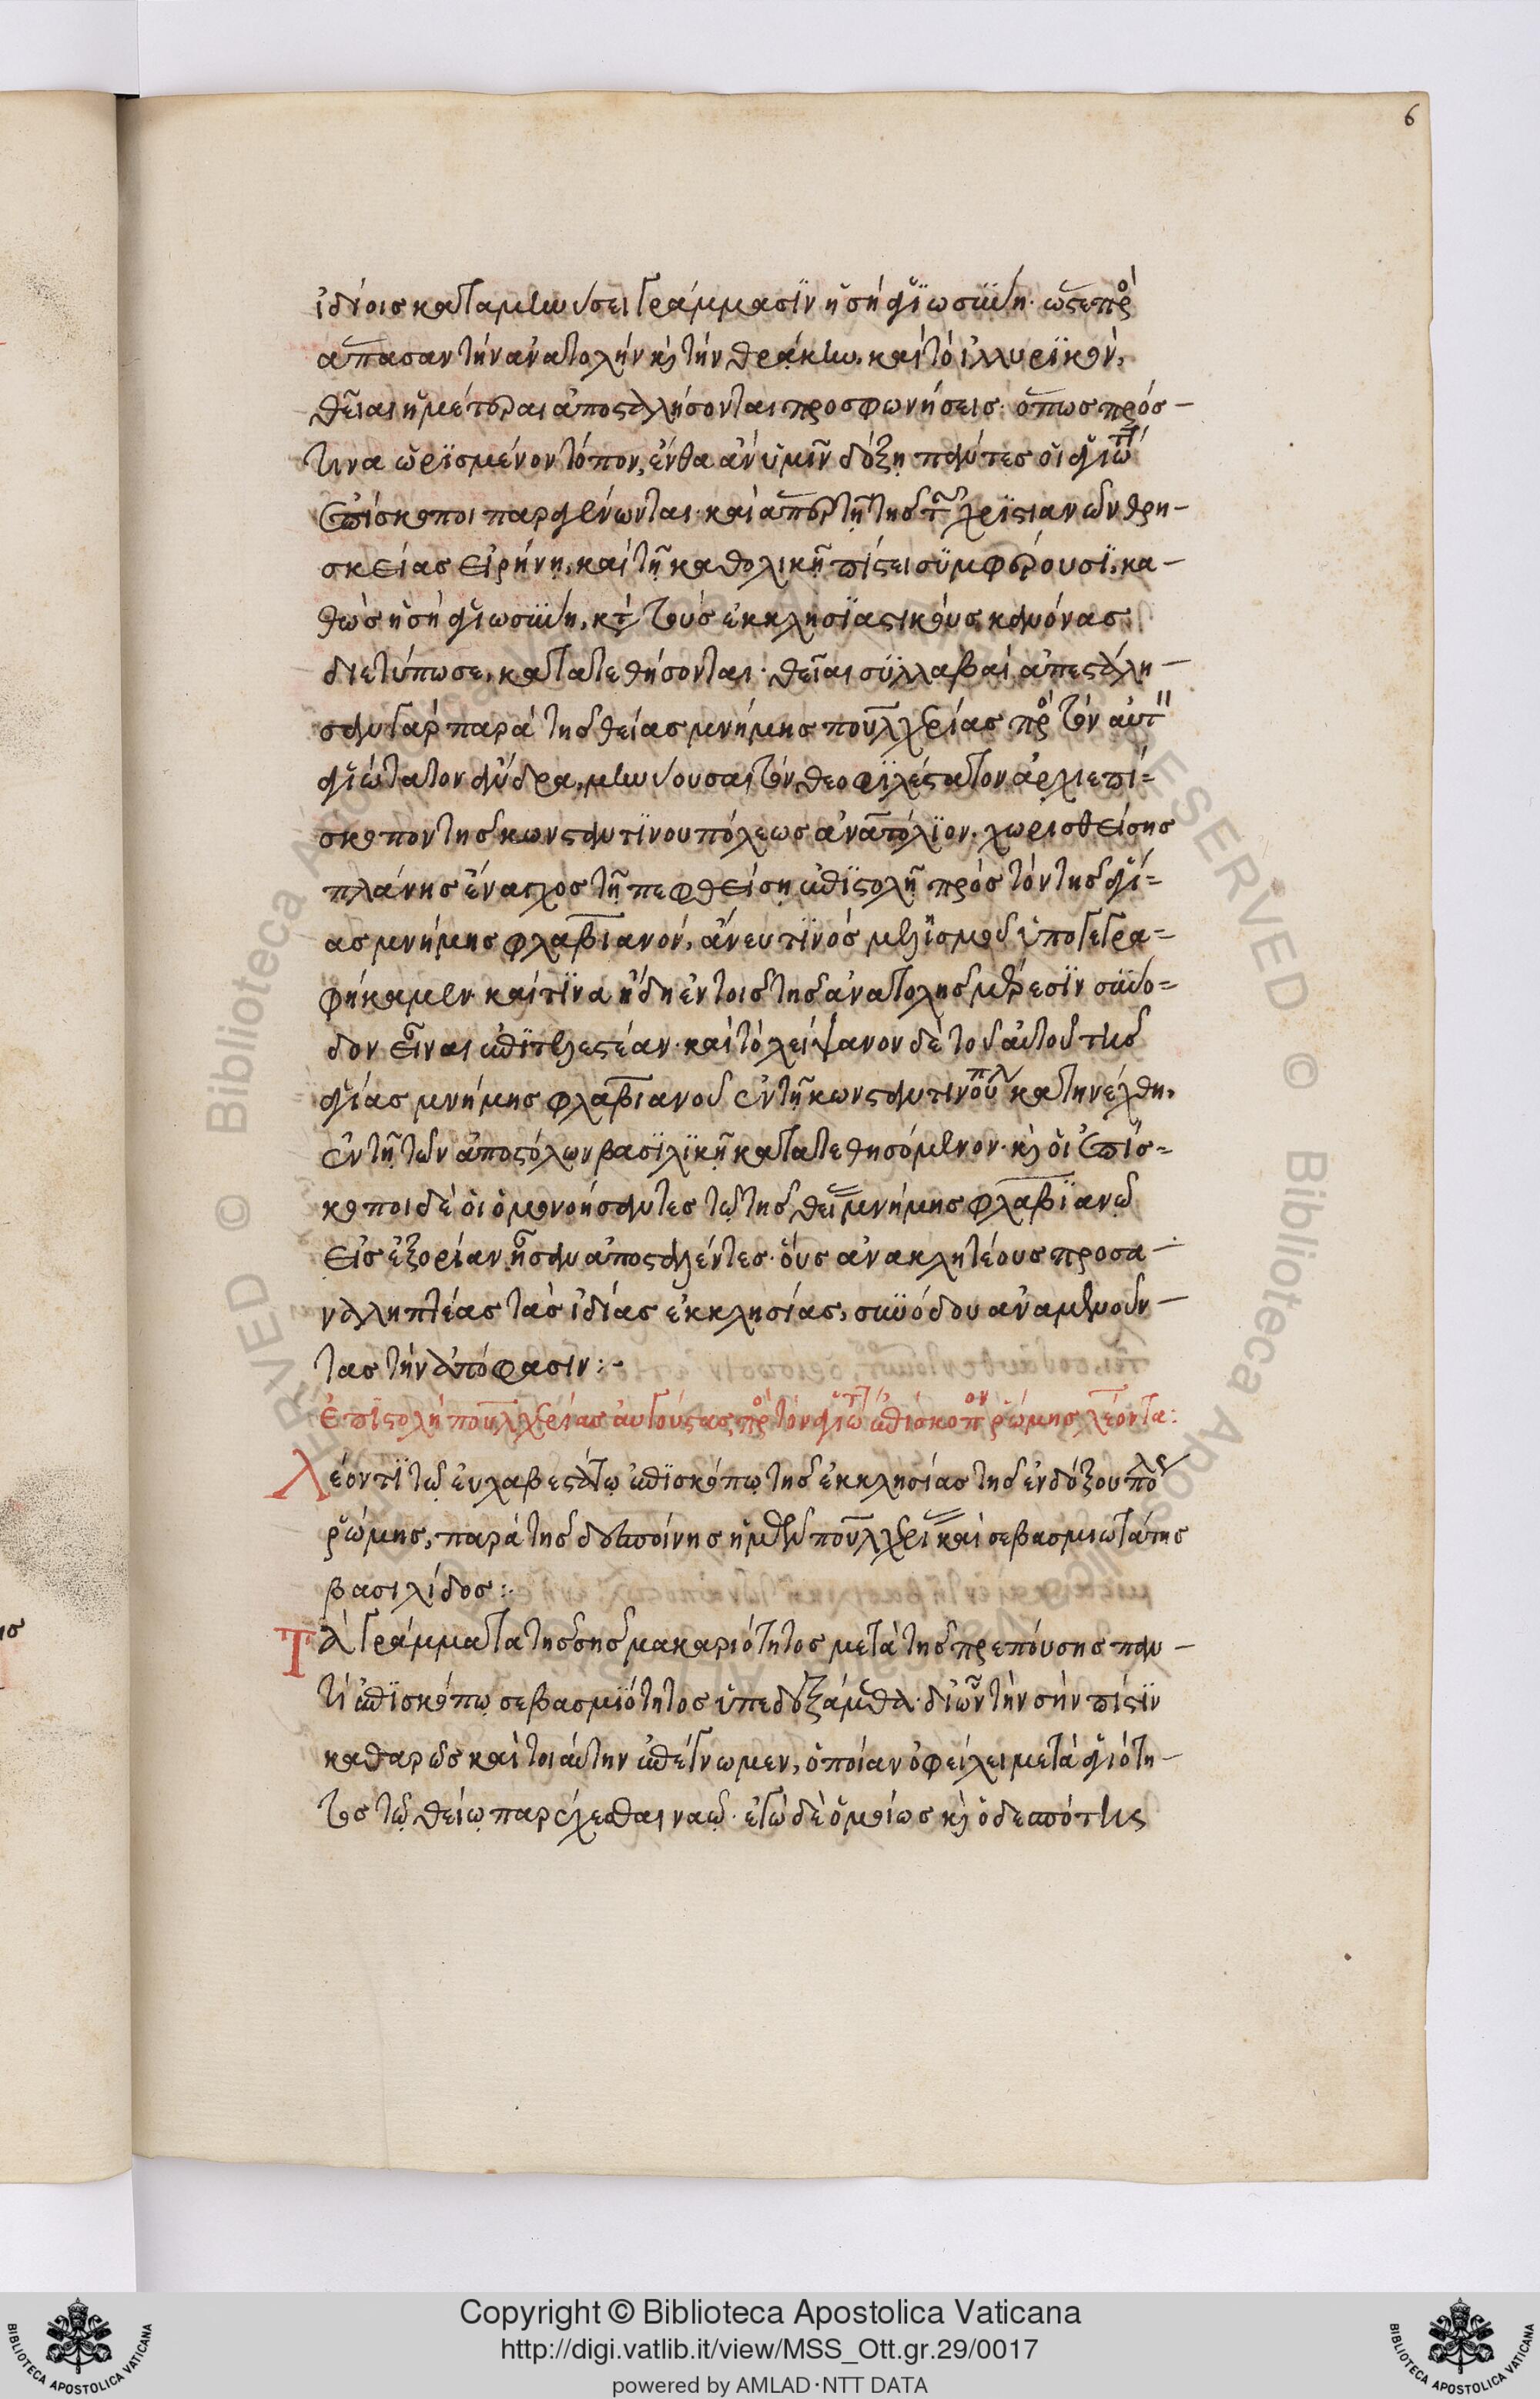 6
ἰδίοις καταμηνύσει γράμμασϊν ἡ σὴ ἁγϊωσύνη· ὥστε πρὸς
ἅπασαν τὴν ἀνατολὴν καὶ τὴν θράκην, καὶ τὸ ἰλλυρϊκὸν,
θεῖαι ἡμέτεραι ἀποσταλήσονται προσφωνήσεις· ὅπως πρός
τινα ὡρϊσμένον τόπον, ἔνθα ἂν ὑμῖν δόξῃ πάντες οἱ ἁγιώτ
ἐπίσκοποι παραγένωνται· καὶ ἅπερ τῇ τῆς τῶν χρϊστιανῶν θρη-
σκείας εἰρήνῃ, καὶ τῇ καθολικῇ πίστει συμφέρουσϊ, κα-
θὼς ἡ σὴ ἁγιωσύνη, κατὰ τοὺς ἐκκλησϊαστικοὺς κανόνας
διετύπωσε, κατατεθήσονται· θεῖαι συλλαβαὶ ἀπεστάλη-
σαν γὰρ παρὰ τῆς θείας μνήμης πουλχερίας πρὸς τὸν αὐτ
ἁγιώτατον ἄνδρα, μηνύουσαι τὸν θεοφϊλέστατον ἀρχιεπί-
σκοπον τῆς κωνσταντϊνουπόλεως ἀνατόλϊον· χωρισθείσης
πλάνης ἔναγχος τῇ πεμφθείσῃ ἐπϊστολῇ πρὸς τὸν τῆς ἁγί-
ας μνήμης φλαβιανὸν, ἄνευ τϊνὸς μερϊσμοῦ ὑπογεγρα-
φήκαμεν καὶ τϊνα ἤδη ἐν τοῖς τῆς ἀνατολῆς μέρεσϊν σύνο-
δον εἶναι ἐπϊτελεστέαν· καὶ τὸ λείψανον δὲ τοῦ αὐτοῦ τῆς
ἁγίας μνήμης φλαβιανοῦ ἐν τῇ κωνσταντινουπλ κατηνέχθη,
ἐν τῇ τῶν ἀποστόλων βασϊλϊκῇ κατατεθησόμενον· καὶ οἱ ἐπίσ-
κοποι δὲ οἱ ὁμονοήσαντες τῷ τῆς θείας μνήμης φλαβϊανῷ
εἰς ἐξορίαν ἦσαν ἀποσταλέντες· οὓς ἀνακλητέους προσα-
ναληπτέας τὰς ἰδίας ἐκκλησίας, συνόδου ἀναμένουν-
τας τὴν ἀπόφασιν:-
ἐπϊστολὴ πουλχερίας αὐγούστας πρὸς τὸν ἁγιώτ ἐπίσκοπον ῥώμης λέοντα:
λέοντϊ τῷ εὐλαβεστάτῳ ἐπϊσκόπῳ τῆς ἐκκλησίας τῆς ἐνδόξου πόλεως
ῥώμης, παρὰ τῆς δεσποίνης ἡμῶν πουλχερίας καὶ σεβασμιωτάτης
βασιλίδος:
Τὰ γράμματα τῆς σῆς μακαριότητος μετὰ τῆς πρεπούσης παν-
τὶ ἐπϊσκόπῳ σεβασμϊότητος ὑπεδεξάμεθα· δι' ὧν τὴν σὴν πίστϊν
καθαρῶς καὶ τοιαύτην ἐπέγνωμεν, ὁποίαν ὀφείλει μετὰ ἁγιότη-
τος τῷ θείῳ παρέχεσθαι ναῷ· ἐγὼ δὲ ὁμοίως καὶ ὁ δεσπότης
Copyright © Biblioteca Apostolica Vaticana
http://digi.vatlib.it/view/MSS_Ott.gr.29/0017
powered by AMLAD·NTT DATA
BIBLIOTECA APOSTOLICA VATICANA
BIBLIOTECA APOSTOLICA VATICANA